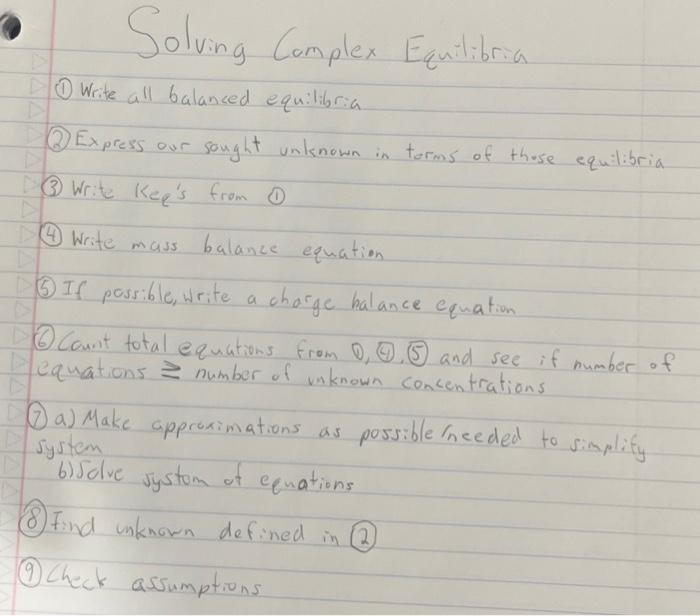 Solving Complex Equilibria
① Write all balanced equilibria
② Express our sought unknown in terms of those equilibria
③ Write Keq's from ①
④ Write mass balance equation
⑤ If possible, write a charge balance equation
⑥ Count total equations from ①, ④, ⑤ and see if number of
equations ≥ number of unknown concentrations
⑦ a) Make approximations as possible/needed to simplify
system
b) Solve system of equations
⑧ Find unknown defined in ②
⑨ Check assumptions